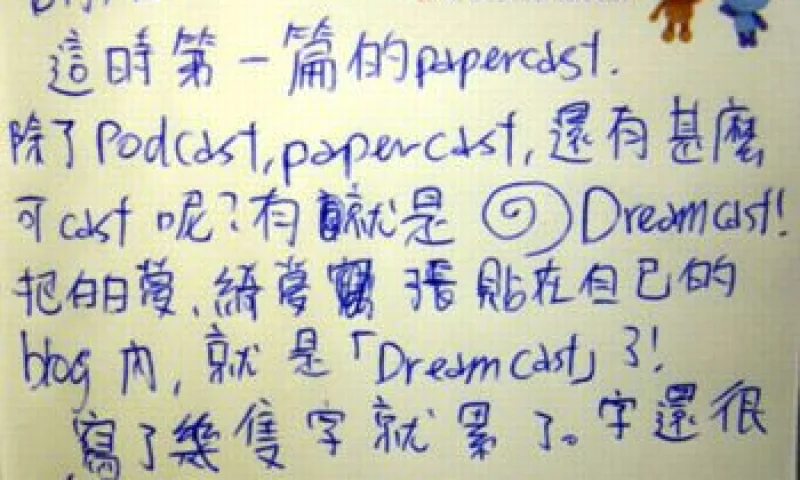 這時第一篇的papercast.
除了Podcast,papercast,還有甚麼
可cast呢?有 就是 Dreamcast!
把白日夢、綺夢 張貼在自己的
blog內,就是「Dreamcast」了!
寫了幾隻字就累了。字還很